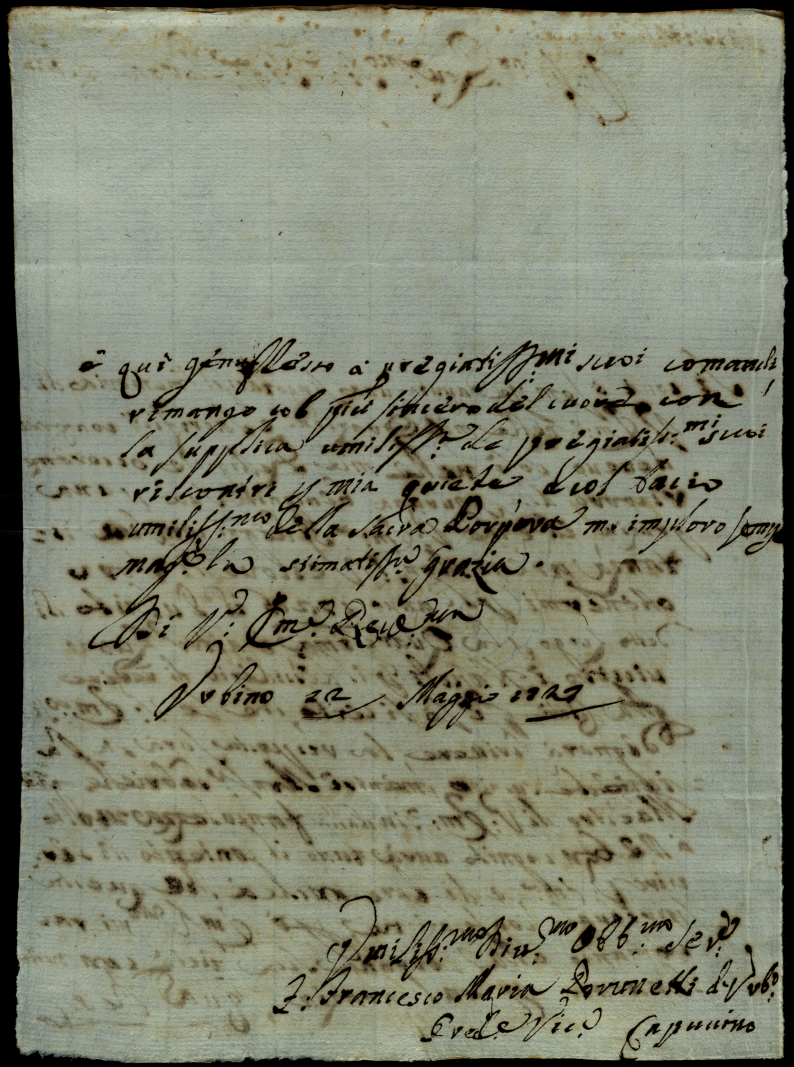 e qui genuflesso a pregiatissmi suoi comandi
rimango col più sincero del cuore, con
la supplica umiliss.ma de pregiatiss.mi suoi
riscontri p mia quiete e col bacio
umiliss.mo della sacra Porpora m imploro
la stimatissa Grazia.
Di V.a Em.a Revd.ma
Urbino 22 Maggio 1727
Umiliss.mo Div.mo Obb.mo Ser.e
F. Francesco Maria d Urb.o
Vic.o Capuccino